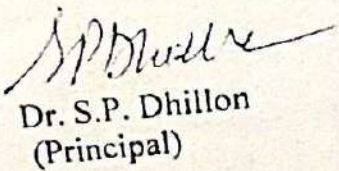 SPDhillon
Dr. S.P. Dhillon
(Principal)